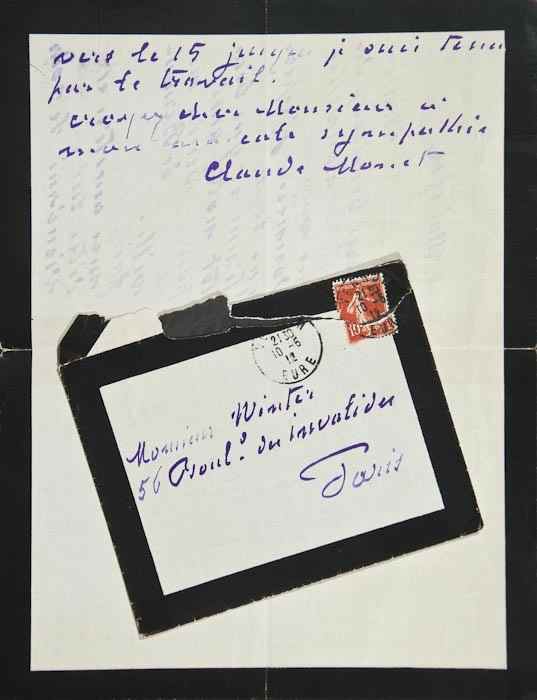 vers le 15 je suis tenu
par le travail.
croyez cher Monsieur à
mon sympathie
Claude Monet
21 30
10 - 6
12
EURE
10
Monsieur Winter
56 Boul.d des invalides
Paris